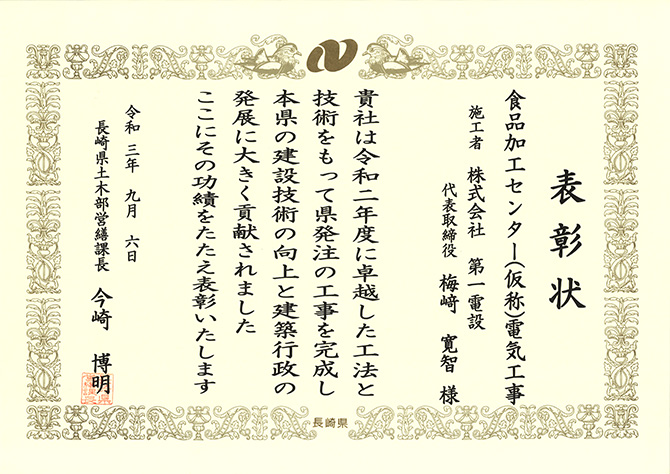 表彰状
食品加工センター(仮称)電気工事
施工者 株式会社 第一電設
代表取締役 梅﨑 寛智 様
貴社は令和二年度に卓越した工法と
技術をもって県発注の工事を完成し
本県の建設技術の向上と建築行政の
発展に大きく貢献されました
ここにその功績をたたえ表彰いたします
令和 三年 九月 六日
長崎県土木部営繕課長 今崎 博明
長崎県